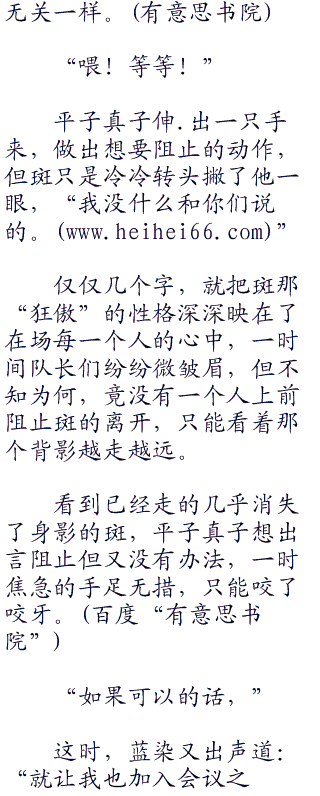 无关一样。(有意思书院)
“喂！等等！”
平子真子伸.出一只手
来，做出想要阻止的动作，
但斑只是冷冷转头撇了他一
眼，“我没什么和你们说
的。(www.heihei66.com)”
仅仅几个字，就把斑那
“狂傲”的性格深深映在了
在场每一个人的心中，一时
间队长们纷纷微皱眉，但不
知为何，竟没有一个人上前
阻止斑的离开，只能看着那
个背影越走越远。
看到已经走的几乎消失
了身影的斑，平子真子想出
言阻止但又没有办法，一时
焦急的手足无措，只能咬了
咬牙。(百度“有意思书
院”)
“如果可以的话，”
这时，蓝染又出声道：
“就让我也加入会议之